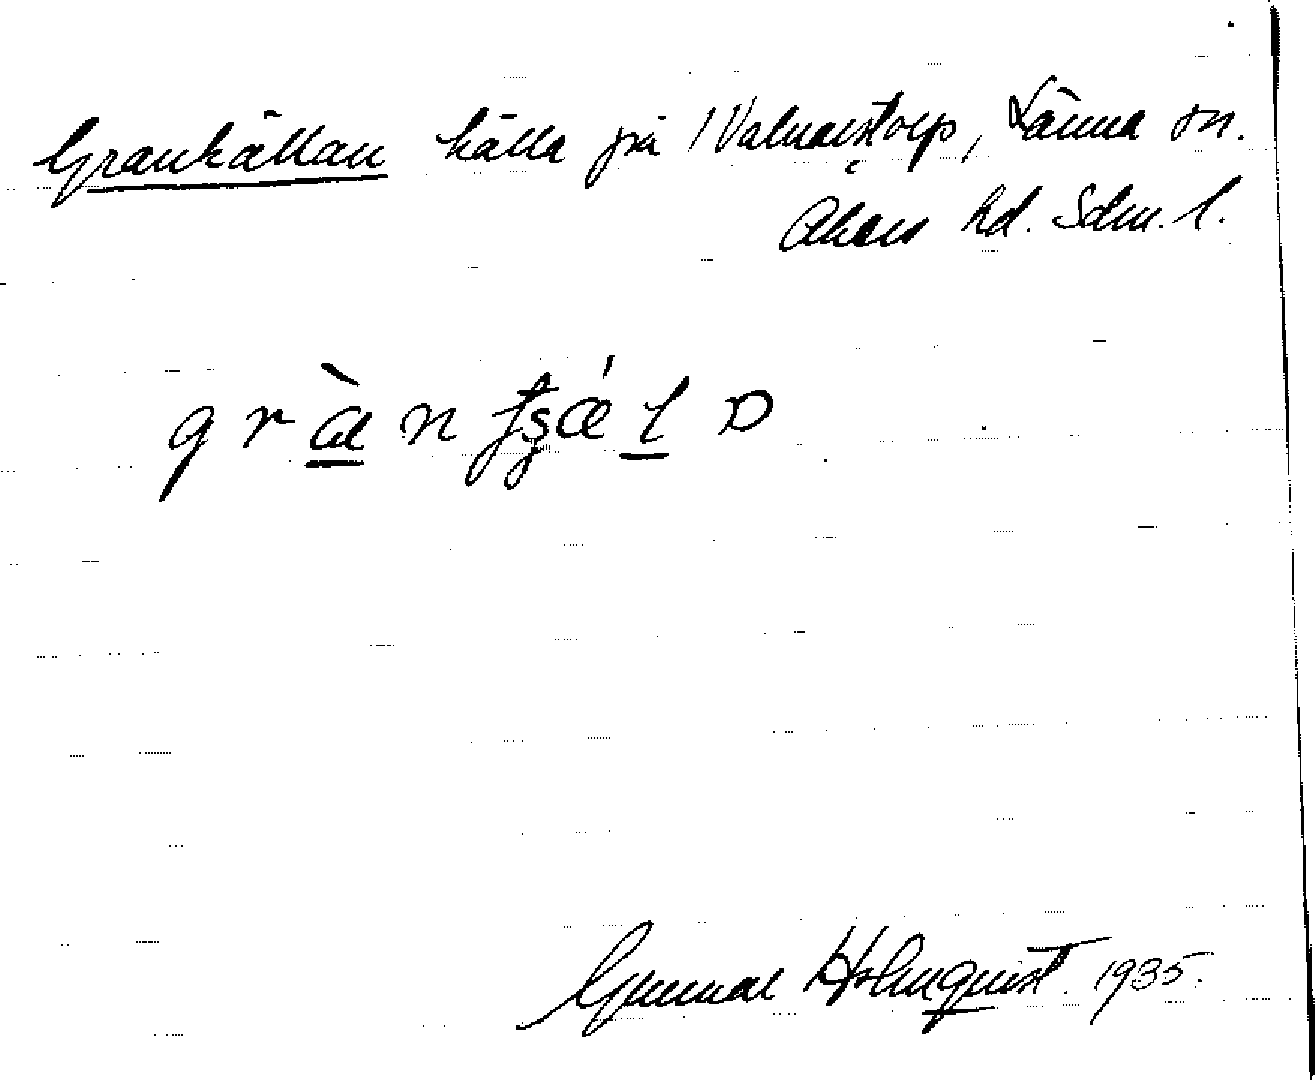 Grankällan källa på Valnaristorp, Länna sn.
Åkers hd. Sdm. l.
Gunnar Holmquist. 1935.